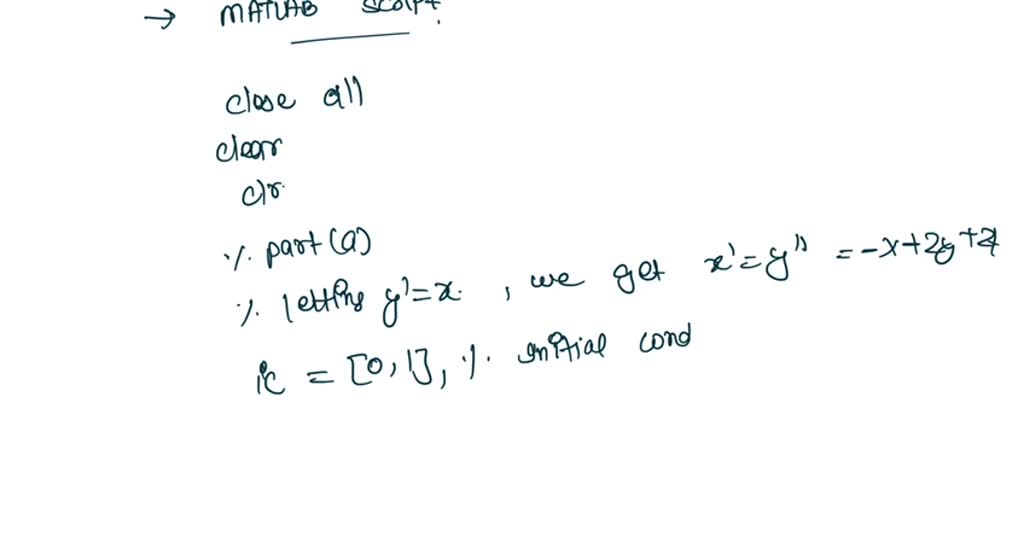 → MATLAB Script.
close all
clear
clr
% part(a)
% letting y'=x. , we get x'=y'' = -x+2y+2
ic = [0,1], % initial cond